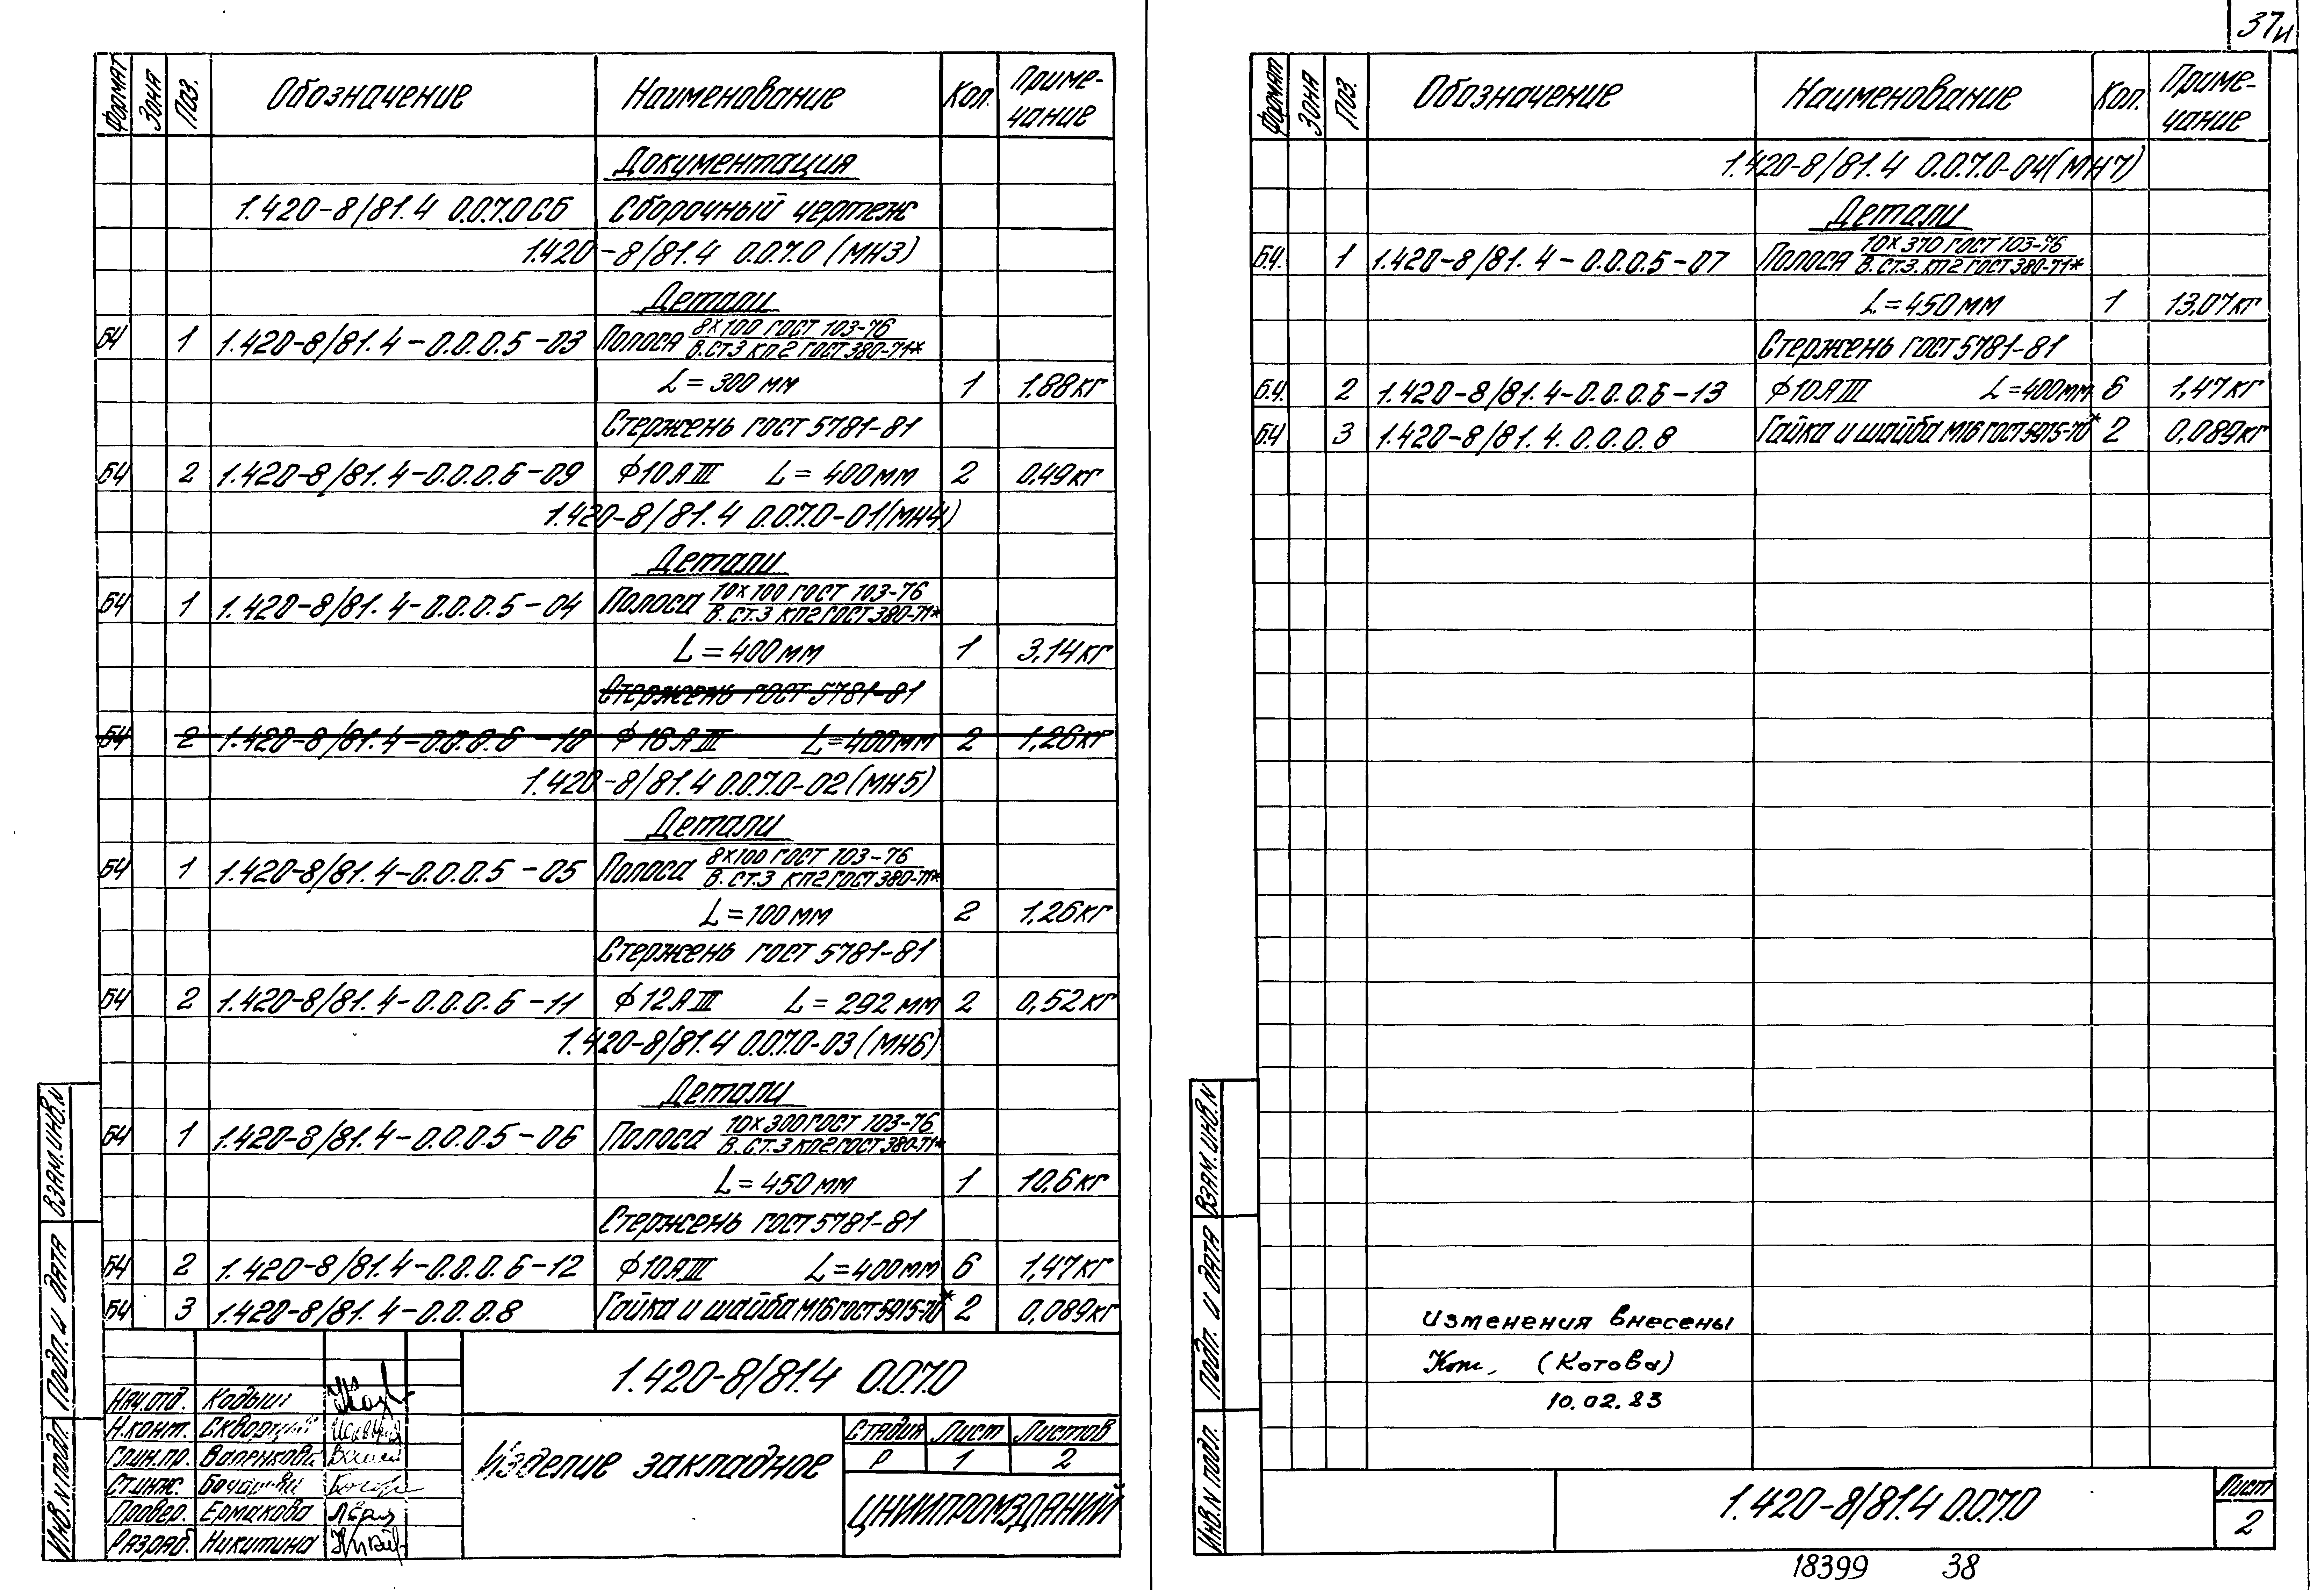 37и
Формат Зона Поз. Обозначение Наименование Кол. Приме-
чание
Документация
1.420-8/81.4 0.0.7.0СБ Сборочный чертеж
1.420-8/81.4 0.0.7.0 (МН3)
Детали
БЧ 1 1.420-8/81.4-0.0.0.5-03 Полоса 8×100 ГОСТ 103-76
В.Ст3 кп2 ГОСТ 380-71*
L=300мм 1 1,88кг
Стержень ГОСТ 5781-81
БЧ 2 1.420-8/81.4-0.0.0.6-09 ф10АIII L=400мм 2 0,49кг
1.420-8/81.4 0.0.7.0-01(МН4)
Детали
БЧ 1 1.420-8/81.4-0.0.0.5-04 Полоса 10×100 ГОСТ 103-76
В.Ст.3 кп2 ГОСТ 380-71*
L=400мм 1 3,14кг
Стержень ГОСТ 5781-81
БЧ 2 1.420-8/81.4-0.0.0.6-10 ф16АIII L=400мм 2 1,26кг
1.420-8/81.4 0.0.7.0-02(МН5)
Детали
БЧ 1 1.420-8/81.4-0.0.0.5-05 Полоса 8×100 ГОСТ 103-76
В.Ст.3 кп2 ГОСТ 380-71*
L=100мм 2 1,26кг
Стержень ГОСТ 5781-81
БЧ 2 1.420-8/81.4-0.0.0.6-11 ф12АIII L=292мм 2 0,52кг
1.420-8/81.4 0.0.7.0-03(МН6)
Детали
БЧ 1 1.420-8/81.4-0.0.0.5-06 Полоса 10×300 ГОСТ 103-76
В.Ст.3 кп2 ГОСТ 380-71*
L=450мм 1 10,6кг
Стержень ГОСТ 5781-81
БЧ 2 1.420-8/81.4-0.0.0.6-12 ф10АIII L=400мм 6 1,47кг
БЧ 3 1.420-8/81.4-0.0.0.8 Гайка и шайба М16 ГОСТ 5915-70* 2 0,089кг
Взам.инв.N
Подп. и дата
Инв.N подл.
1.420-8/81.4 0.0.7.0
Нач.отд. Кодыш
Н.конт.
Гл.инж.пр.
Ст.инж.
Провер. Ермакова
Разраб. Никитина
Изделие закладное
Стадия Лист Листов
Р 1 2
ЦНИИПРОМЗДАНИЙ
Формат Зона Поз. Обозначение Наименование Кол. Приме-
чание
1.420-8/81.4 0.0.7.0-04(МН7)
Детали
Б.Ч. 1 1.420-8/81.4-0.0.0.5-07 Полоса 10×370 ГОСТ 103-76
В.Ст.3.кп2 ГОСТ 380-71*
L=450мм 1 13,07кг
Стержень ГОСТ 5781-81
Б.Ч. 2 1.420-8/81.4-0.0.0.6-13 ф10АIII L=400мм 6 1,47кг
Б.Ч 3 1.420-8/81.4.0.0.0.8 Гайка и шайба М16 ГОСТ 5915-70* 2 0,089кг
Изменения внесены
(Котова)
10.02.83
Взам.инв.N
Подп. и дата
Инв.N подл.
1.420-8/81.4 0.0.7.0
Лист
2
18399 38